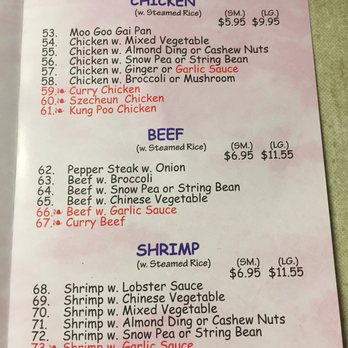 CHICKEN
(w. Steamed Rice) (SM.) (LG.)
$5.95 $9.95
53. Moo Goo Gai Pan
54. Chicken w. Mixed Vegetable
55. Chicken w. Almond Ding or Cashew Nuts
56. Chicken w. Snow Pea or String Bean
57. Chicken w. Ginger or Garlic Sauce
58. Chicken w. Broccoli or Mushroom
59. Curry Chicken
60. Szecheun Chicken
61. Kung Poo Chicken
BEEF
(w. Steamed Rice) (SM.) (LG.)
$6.95 $11.55
62. Pepper Steak w. Onion
63. Beef w. Broccoli
64. Beef w. Snow Pea or String Bean
65. Beef w. Chinese Vegetable
66. Beef w. Garlic Sauce
67. Curry Beef
SHRIMP
(w. Steamed Rice) (SM.) (LG.)
$6.95 $11.55
68. Shrimp w. Lobster Sauce
69. Shrimp w. Chinese Vegetable
70. Shrimp w. Mixed Vegetable
71. Shrimp w. Almond Ding or Cashew Nuts
72. Shrimp w. Snow Pea or String Bean
73. Shrimp w. Garlic Sauce